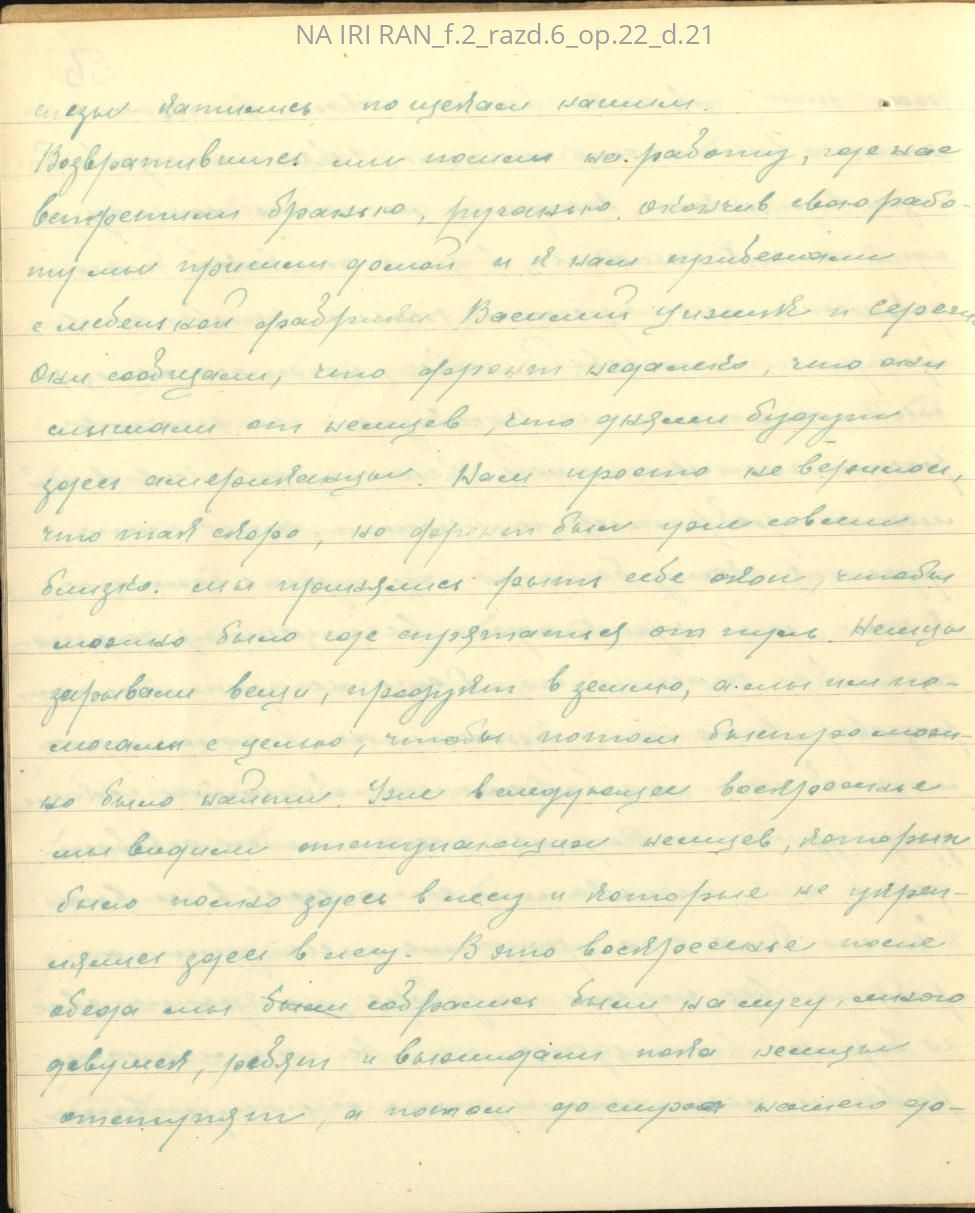 NA IRI RAN_f.2_razd.6_op.22_d.21
слезы катились по щекам нашим.
Возвратившись мы пошли на работу, где нас
встретили бранью, руганью. окончив свою рабо-
ту мы пришли домой и к нам прибежали
с мебельной фабрики Василий и Сергей
Они сообщали, что фронт недалеко, что они
слышали от немцев, что днями будут
здесь американцы. Нам просто не верилось,
что так скоро, но фронт был уже совсем
близко. мы принялись рыть себе окоп, чтобы
можно было где спрятатся от пуль. Немцы
зарывали вещи, продукт в землю, а мы им по-
могали с целью, чтобы потом быстро мож-
но было найти. Уже в следующее воскресенье
мы видили отступающих немцев, которых
было полно здесь в лесу и которые не укреп-
лялись здесь в лесу. В это воскресенье после
обеда мы были собрались были на лугу, много
девушек, ребят и выжидали пока немцы
отступят, а потом до нашего до-